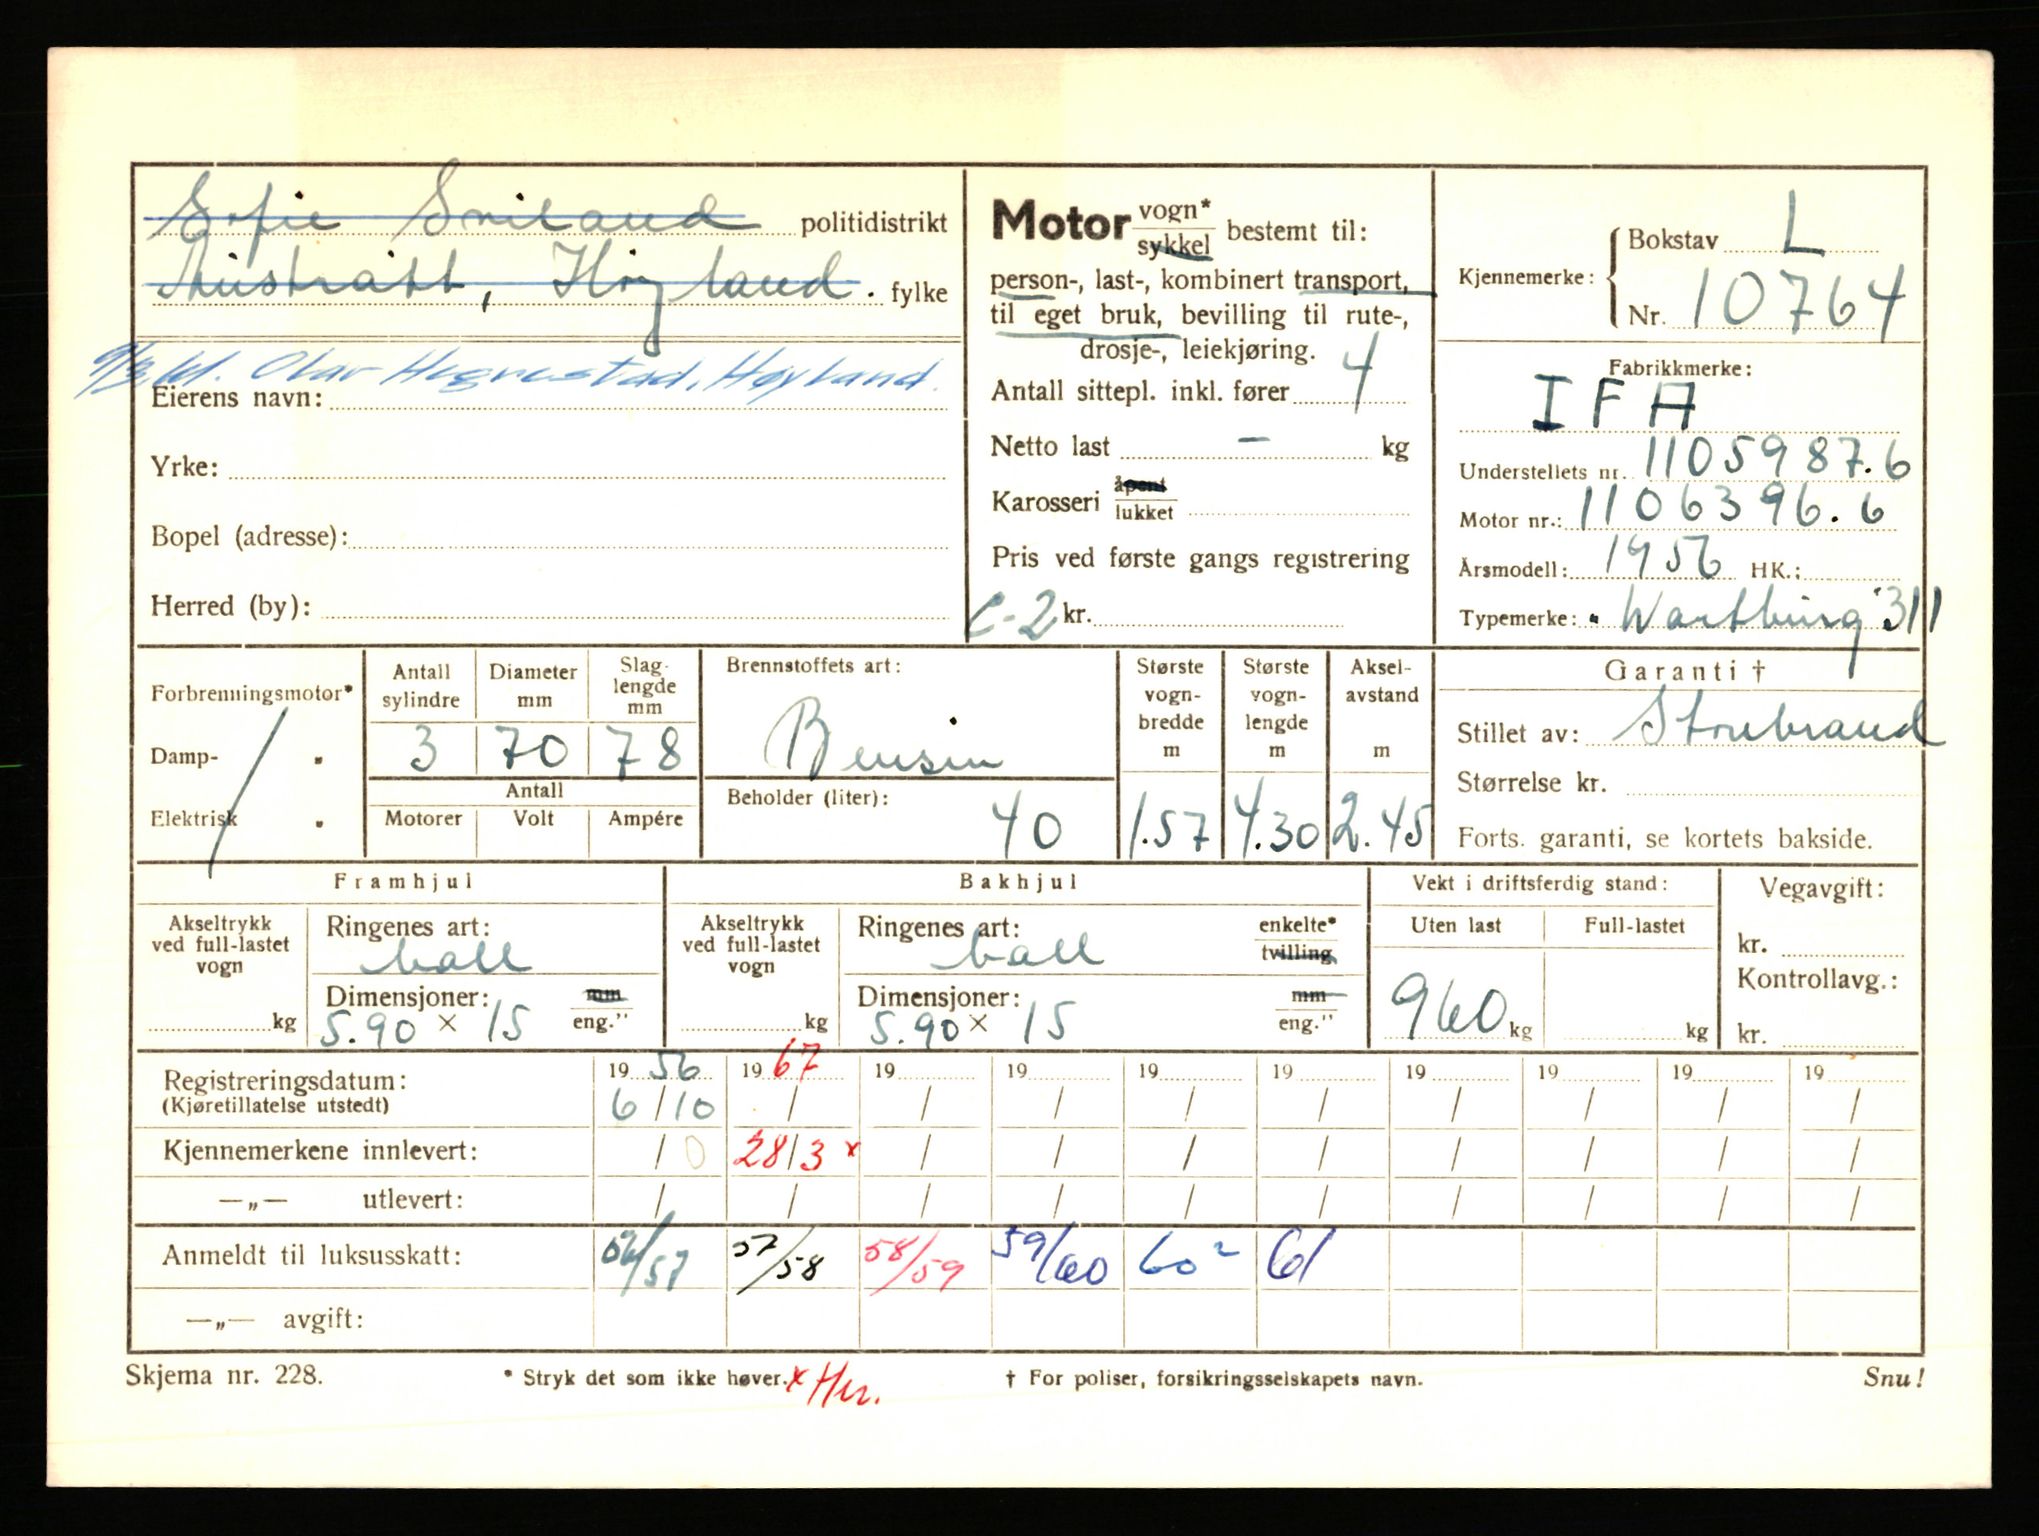 Sofie Smiland politidistrikt
Austrått, Høyland. fylke
Olav Hegrestad, Høyland.
Eierens navn:
Yrke:
Bopel (adresse):
Herred (by):
Motor vogn* sykkel bestemt til:
person-, last-, kombinert transport,
til eget bruk, bevilling til rute-,
drosje-, leiekjøring.
Antall sittepl. inkl. fører 4
Netto last – kg
Karosseri åpent lukket
Pris ved første gangs registrering
C-2 kr.
Kjennemerke: Bokstav L
Nr. 10764
Fabrikkmerke:
IFA
Understellets nr. 1105987.6
Motor nr.: 1106396.6
Årsmodell: 1956 HK.:
Typemerke: Wartburg 311
Forbrenningsmotor*
Damp- "
Elektrisk "
Antall sylindre Diameter mm Slaglengde mm
3 70 78
Antall
Motorer Volt Ampére
Brennstoffets art:
Bensin
Beholder (liter):
40
Største vognbredde m
1.57
Største vognlengde m
4.30
Akselavstand m
2.45
Garanti †
Stillet av: Storebrand
Størrelse kr.
Forts. garanti, se kortets bakside.
Framhjul
Akseltrykk ved full-lastet vogn
kg
Ringenes art:
ball
Dimensjoner: mm eng."
5.90 × 15
Bakhjul
Akseltrykk ved full-lastet vogn
kg
Ringenes art: enkelte* tvilling
ball
Dimensjoner: mm eng."
5.90 × 15
Vekt i driftsferdig stand:
Uten last Full-lastet
960 kg kg
Vegavgift:
kr.
Kontrollavg.:
kr.
Registreringsdatum: 19 56 19 67 19 19 19 19 19 19 19 19
(Kjøretillatelse utstedt) 6/10 / / / / / / / / /
Kjennemerkene innlevert: / 0 28/3 x / / / / / / / /
—„— utlevert: / / / / / / / / / /
Anmeldt til luksusskatt: 56/57 57/58 58/59 59/60 60² 61
—„— avgift:
Skjema nr. 228. * Stryk det som ikke høver. x Her. † For poliser, forsikringsselskapets navn. Snu!